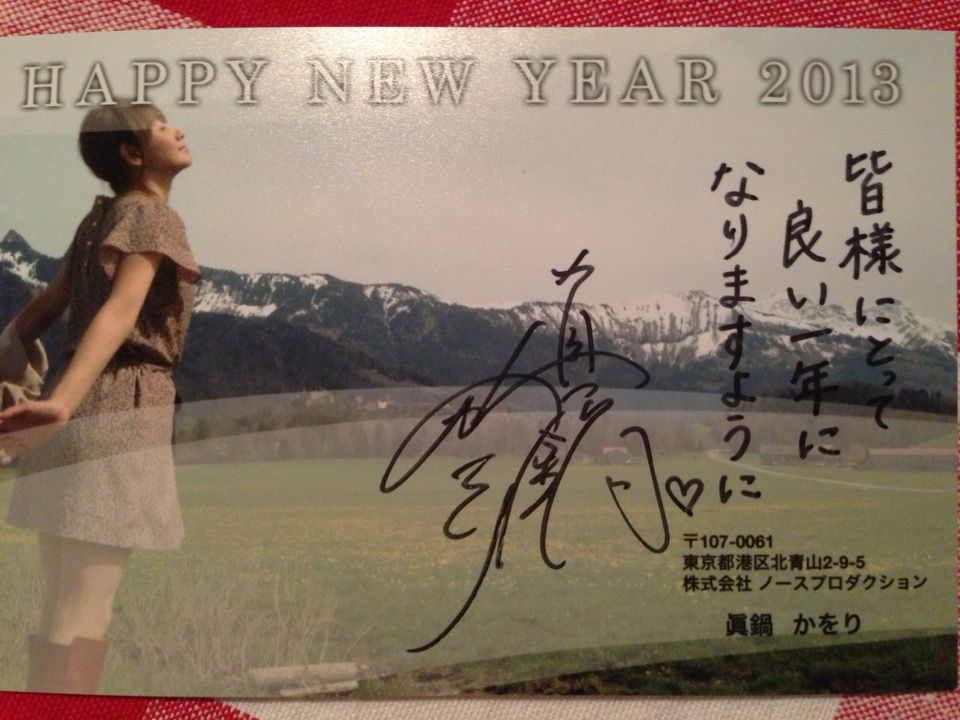 HAPPY NEW YEAR 2013
皆様にとって
良い一年に
なりますように
〒107-0061
東京都港区北青山2-9-5
株式会社 ノースプロダクション
眞鍋 かをり